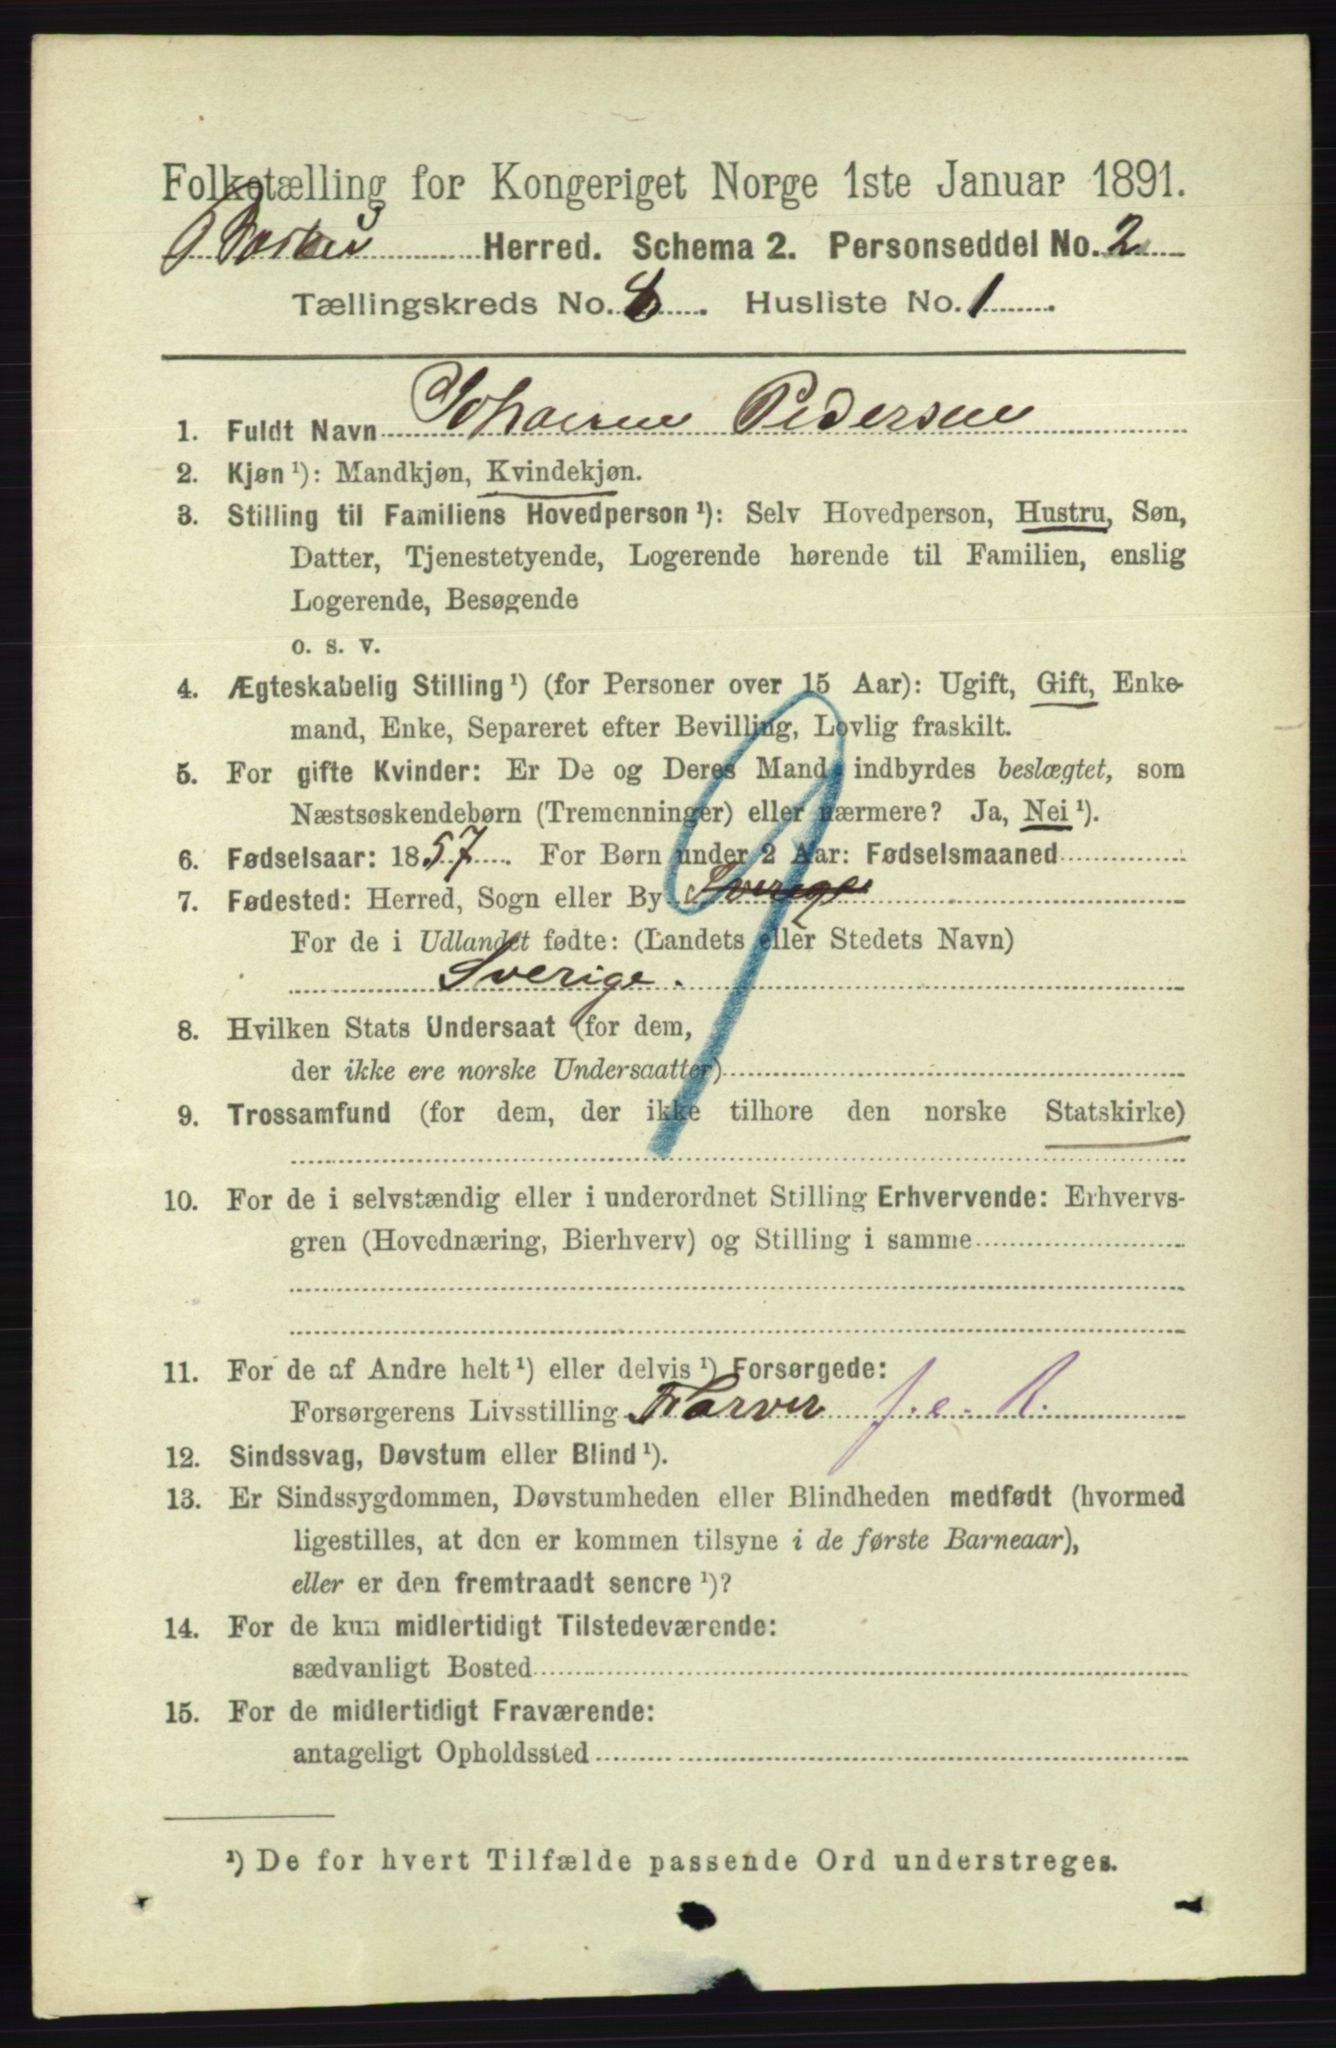 Folketælling for Kongeriget Norge 1ste Januar 1891.
Herred. Schema 2. Personseddel No. 2
Tællingskreds No. 8. Husliste No. 1.
1. Fuldt Navn Johanne Pedersen
2. Kjøn ¹): Mandkjøn, Kvindekjøn.
3. Stilling til Familiens Hovedperson ¹): Selv Hovedperson, Hustru, Søn,
Datter, Tjenestetyende, Logerende hørende til Familien, enslig
Logerende, Besøgende
o. s. v.
4. Ægteskabelig Stilling ¹) (for Personer over 15 Aar): Ugift, Gift, Enke-
mand, Enke, Separeret efter Bevilling, Lovlig fraskilt.
5. For gifte Kvinder: Er De og Deres Mand indbyrdes beslægtet, som
Næstsøskendebørn (Tremenninger) eller nærmere? Ja, Nei ¹).
6. Fødselsaar: 1857. For Børn under 2 Aar: Fødselsmaaned
7. Fødested: Herred, Sogn eller By Sverige
For de i Udlandet fødte: (Landets eller Stedets Navn)
Sverige.
8. Hvilken Stats Undersaat (for dem,
der ikke ere norske Undersaatter)
9. Trossamfund (for dem, der ikke tilhore den norske Statskirke)
10. For de i selvstændig eller i underordnet Stilling Erhvervende: Erhvervs-
gren (Hovednæring, Bierhverv) og Stilling i samme
11. For de af Andre helt ¹) eller delvis ¹) Forsørgede:
Forsørgerens Livsstilling Farver f. e. R.
12. Sindssvag, Døvstum eller Blind ¹).
13. Er Sindssygdommen, Døvstumheden eller Blindheden medfødt (hvormed
ligestilles, at den er kommen tilsyne i de første Barneaar),
eller er den fremtraadt senere ¹)?
14. For de kun midlertidigt Tilstedeværende:
sædvanligt Bosted
15. For de midlertidigt Fraværende:
antageligt Opholdssted
¹) De for hvert Tilfælde passende Ord understreges.